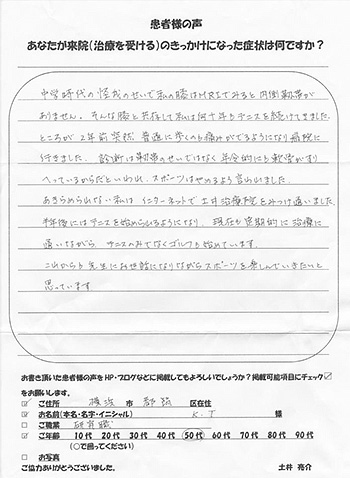 患者様の声
あなたが来院(治療を受ける)のきっかけになった症状は何ですか?
中学時代の怪我のせいで私の膝はMRIでみると内側靭帯が
ありません。そんな膝と共存して私は何十年もテニスを続けてきました。
ところが2年前突然 普通に歩くのも痛みがでるようになり病院に
行きました。診断は靭帯のせいではなく年令的にも軟骨がすり
へっているからだといわれ、スポーツはやめるよう言われました。
あきらめられない私は インターネットで土井治療院をみつけ通いました。
半年後にはテニスを始められるようになり、現在も定期的に治療に
通いながら テニスのみでなくゴルフも始めています。
これからも先生にお世話になりながらスポーツを楽しんでいきたいと
思っています
お書き頂いた患者様の声をHP・ブログなどに掲載してもよろしいでしょうか?掲載可能項目にチェック☑
をお願いします。
☑ ご住所 横浜 市 都筑 区在住
☑ お名前(本名・名字・イニシャル) K.T 様
☑ ご職業 研究職
☑ ご年齢 10代 20代 30代 40代 50代 60代 70代 80代 90代
(○で囲ってください)
□ お写真
ご協力ありがとうございました。 土井 亮介